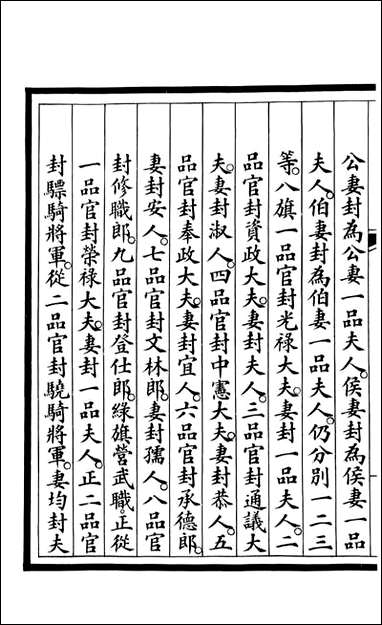 公妻封為公妻一品夫人。侯妻封為侯妻一品
夫人。伯妻封為伯妻一品夫人。仍分別一二三
等。八旗一品官封光祿大夫。妻封一品夫人。二
品官封資政大夫。妻封夫人。三品官封通議大
夫。妻封淑人。四品官封中憲大夫。妻封恭人。五
品官封奉政大夫。妻封宜人。六品官封承德郎。
妻封安人。七品官封文林郎。妻封孺人。八品官
封修職郎。九品官封登仕郎。綠旗營武職。正從
一品官封榮祿大夫。妻封一品夫人。正二品官
封驃騎將軍。從二品官封驍騎將軍。妻均封夫